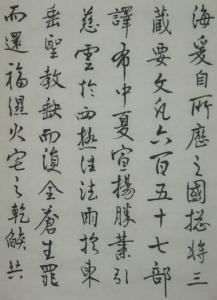 海爰自所歷之國捴將三
藏要文凡六百五十七部
譯布中夏宣揚勝業引
慈雲於西極注法雨於東
垂聖教缺而復全蒼生罪
而還福濕火宅之乾燄共